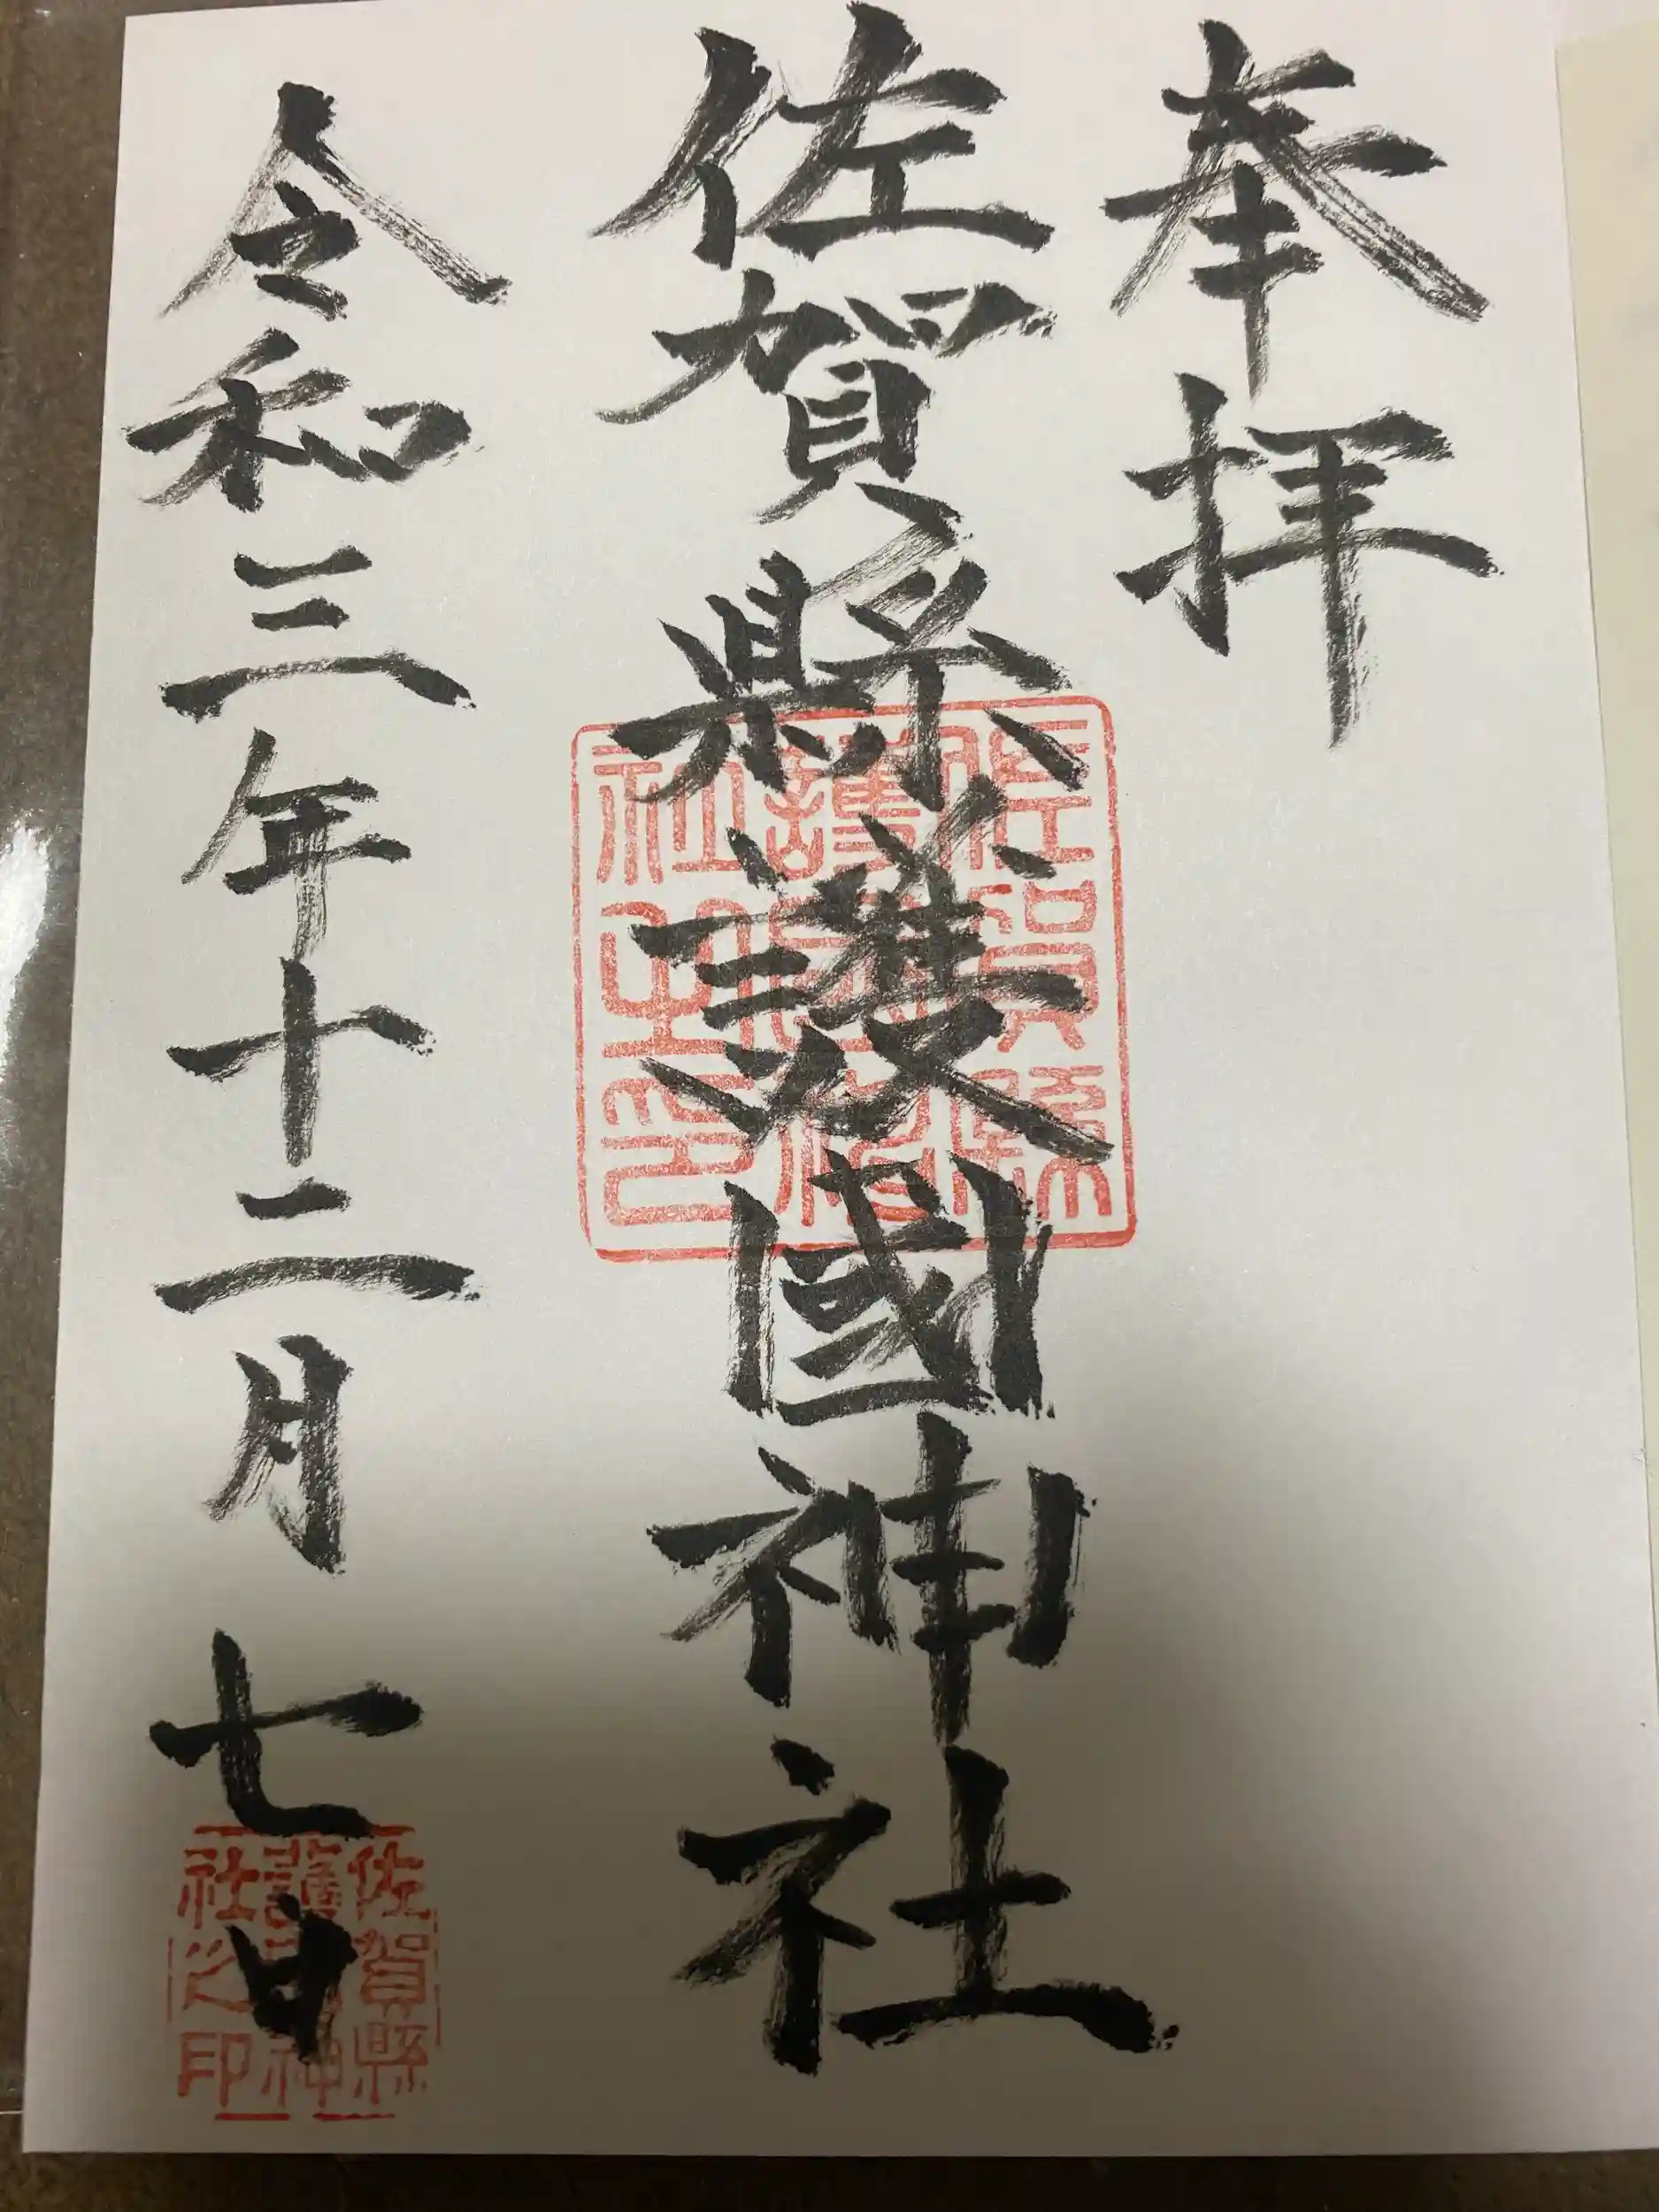 奉拝
佐賀縣護國神社
佐賀縣
護國神
社之印
令和三年十二月七日
佐賀縣
護國神
社之印